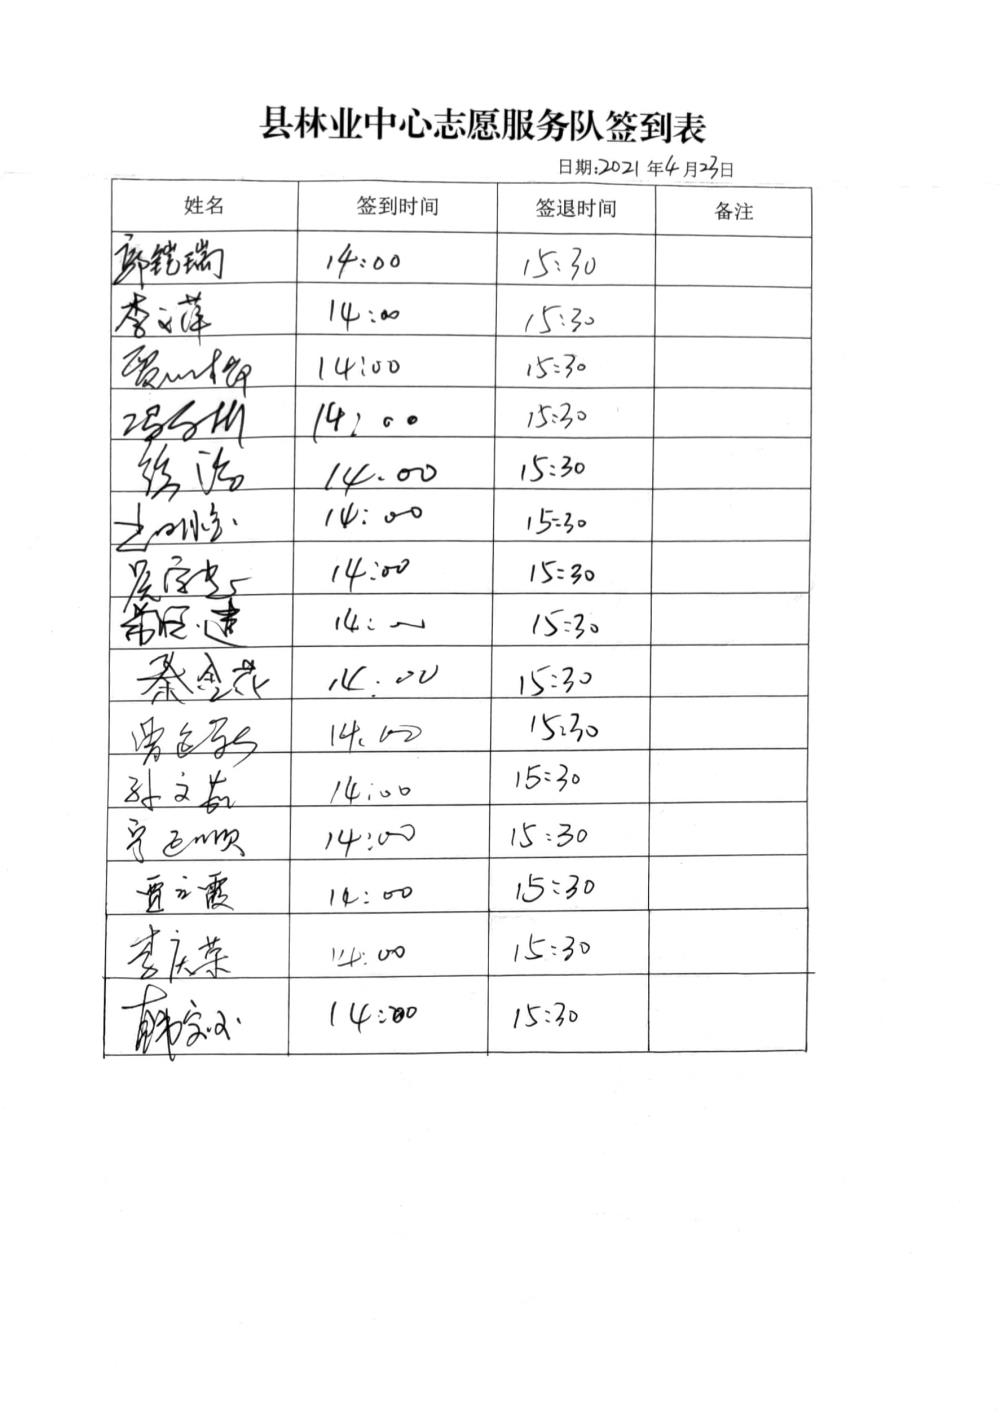 县林业中心志愿服务队签到表
日期:2021年4月23日
姓名 签到时间 签退时间 备注
郭铠瑞 14:00 15:30
李文萍 14:00 15:30
14:00 15:30
14:00 15:30
徐浩 14:00 15:30
14:00 15:30
14:00 15:30
14: 15:30
秦金花 14:00 15:30
14:00 15:30
孙文茹 14:00 15:30
14:00 15:30
贾立霞 14:00 15:30
李庆荣 14:00 15:30
14:00 15:30